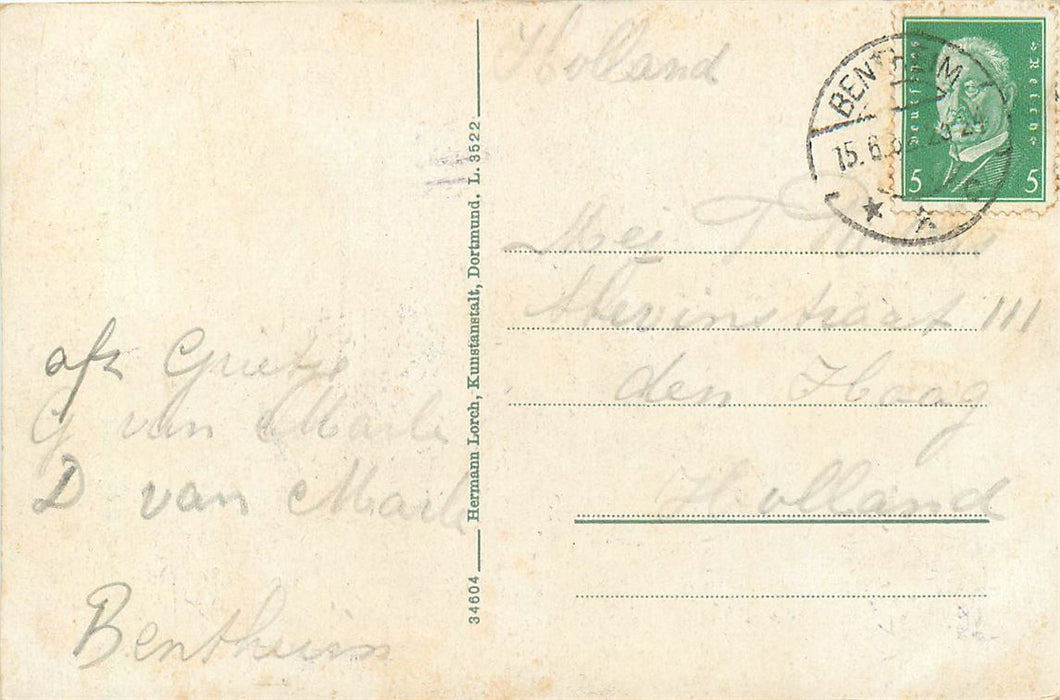 Holland
Deutsches Reich
5 5
BENTHEIM
15.6.
34604 Hermann Lorch, Kunstanstalt, Dortmund. L. 3522
Mej
Stevinstraat 111
den Haag
Holland
afz Grietje
G van Marle
D van Marle
Benthuim